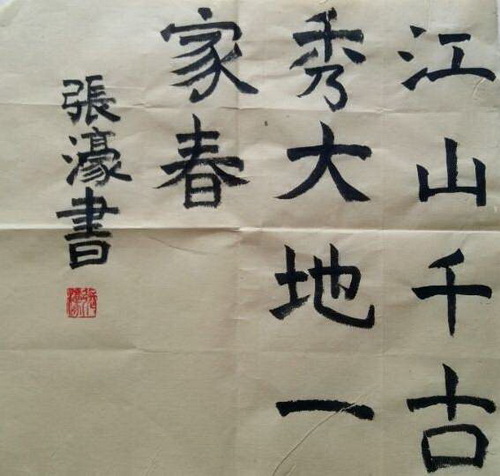 江山千古
秀大地一
家春
張濠書